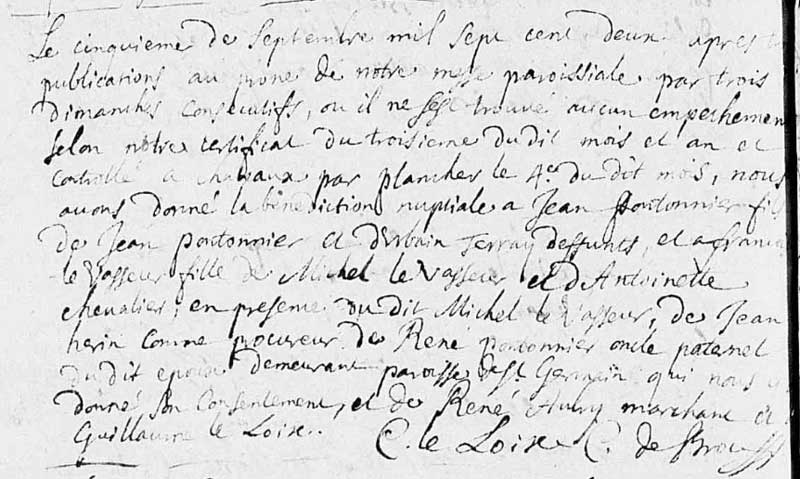 Le cinquieme de Septembre mil sept cent deux apres
publications au prone de notre messe paroissiale par trois
dimanches consecutifs, ou il ne s'est trouvé aucun empechement
selon notre certificat du troisieme dudit mois et an et
controllé a par plancher le 4e du dit mois, nous
auons donné la bénédiction nuptiale a Jean Pontonnier fils
de Jean pontonnier et d'urbain deffunts, et a
le Vasseur fille de Michel le Vasseur et d'Antoinette
chevalier; en presence du dit Michel le Vasseur, de Jean
herin comme procureur de René pontonnier oncle paternel
du dit epoux demeurant paroisse de St. Germain qui nous a
donné son consentement, et de René Aury marchant et
Guillaume le Loise. C. le Loise C. de